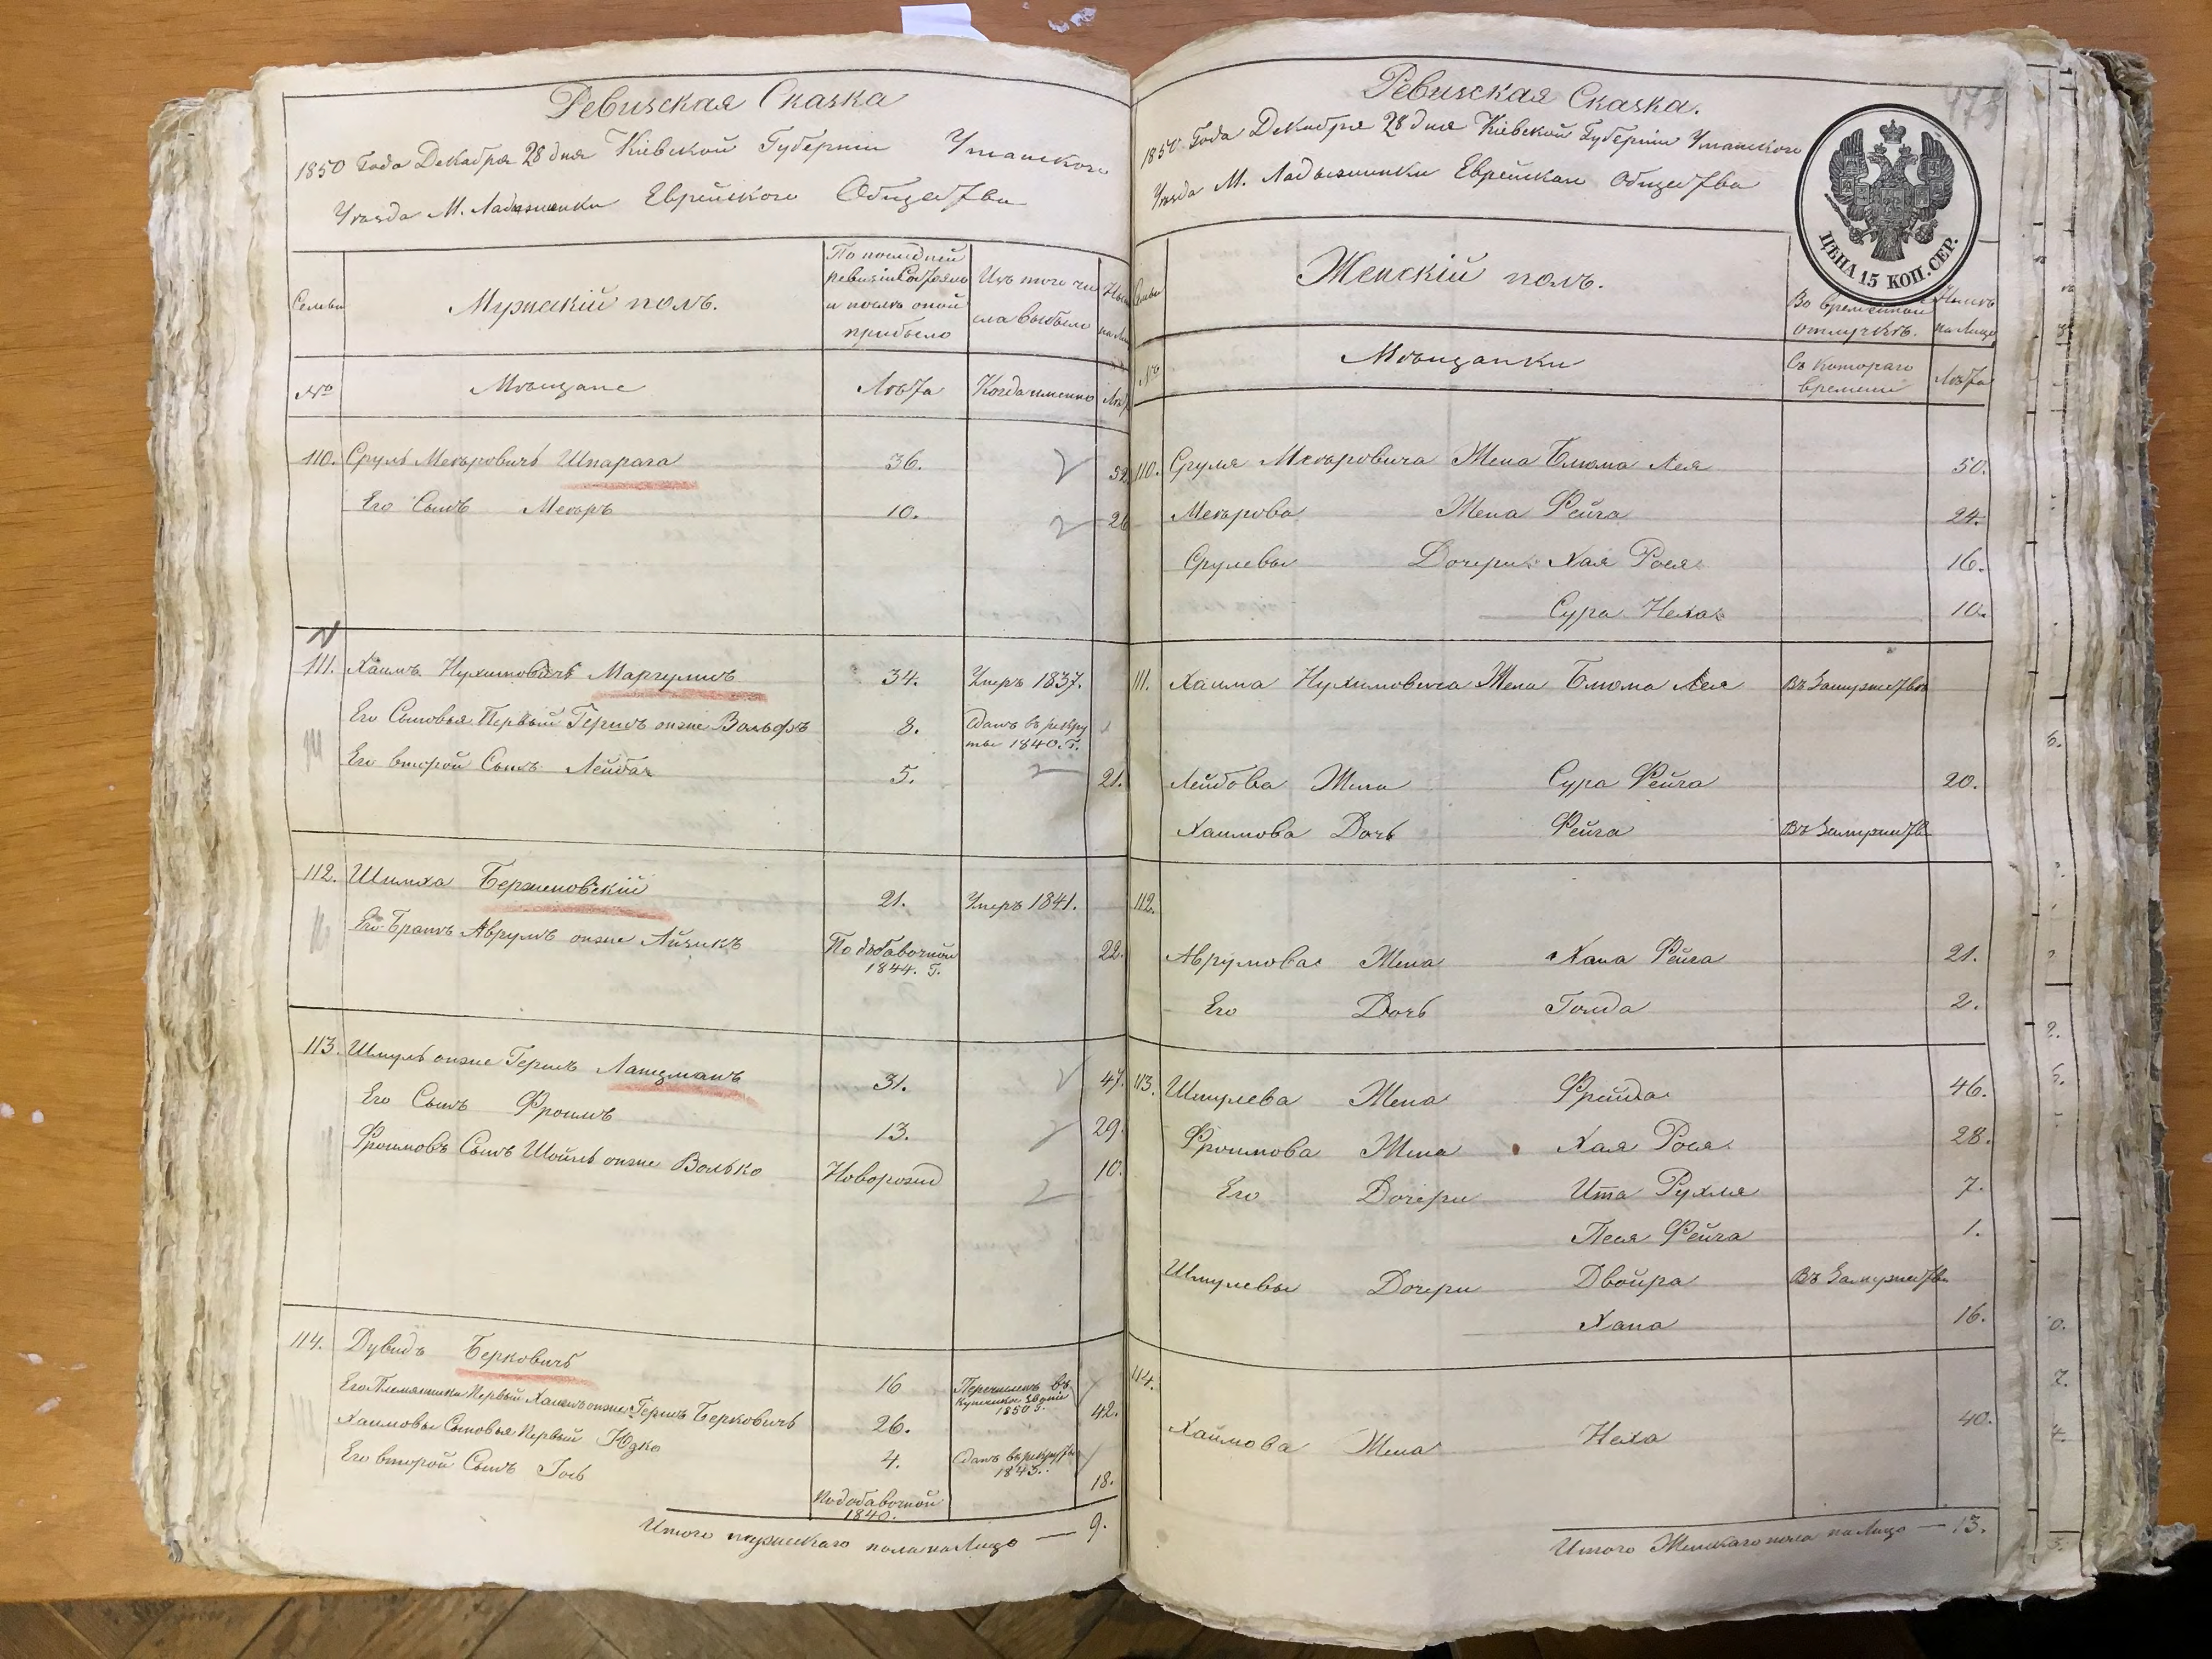 Ревизская Сказка
1850 Года Декабря 28 дня Кіевской Губерніи Уманского
Уезда М. Ладыжинки Еврейского Общества
Семьи
Мужескій полъ.
По последней
ревизіи Состояло
и послѣ оной
прибыло
Изъ того чи
сла выбыло
№
Мѣщане
Лѣта
Когда именно
Лѣта
110. Сруль Мееровичъ Шпарага 36. 52
Его Сынъ Мееръ 10. 26
111. Хаимъ Нухимовичъ Маргулисъ 34. Умеръ 1837.
Его Сыновья Первый Гершъ онже Вольфъ 8. Сданъ въ рекру
ты 1840. Г.
Его второй Сынъ Лейба 5. 21.
112. Шимха Бержановскій 21. Умеръ 1841.
Его Братъ Аврумъ онже Айзикъ По добавочной 22.
1844. Г.
113. Шмуль онже Гершъ Лацманъ 31. 47.
Его Сынъ Фроимъ 13. 29.
Фроимовъ Сынъ Шойль онже Волько Новорожд 10.
114. Дувидъ Берковичъ 16 Перечисленъ въ
Купеческое Званіе
1850 г.
Его Племянники Первый Хаимъ онже Гершъ Берковичъ 26. 42.
Хаимовы Сыновья Первый Юдко 4. Сданъ въ рекруты
1843.
Его второй Сынъ Госъ По добавочной 18.
1840.
Итого мужескаго пола на Лицо — 9.
Ревизская Сказка.
1850 Года Декабря 28 дня Кіевской Губерніи Уманского
Уезда М. Ладыжинки Еврейскаго Общества
ЦѢНА 15 КОП. СЕР.
Семьи
Женскій полъ.
Во временной
отлучкѣ.
Нынѣ
на Лицо
№
Мѣщанки
Съ котораго
времени
Лѣта
110. Сруля Мееровича Жена Блюма Лея 50.
Меерова Жена Фейга 24.
Срулевы Дочери Хая Рося 16.
Сура Нехая 10.
111. Хаима Нухимовича Жена Блюма Лея Въ Замужествѣ
Лейбова Жена Сура Фейга 20.
Хаимова Дочь Фейга Въ Замужествѣ
112.
Аврумова Жена Хана Фейга 21.
Его Дочь Голда 2.
113. Шмулева Жена Фрейда 46.
Фроимова Жена Хая Рося 28.
Его Дочери Ита Рухля 7.
Песя Фейга 1.
Шмулевы Дочери Двойра Въ Замужествѣ
Хана 16.
114.
Хаимова Жена Неха 40.
Итого Женскаго пола на Лицо — 13.